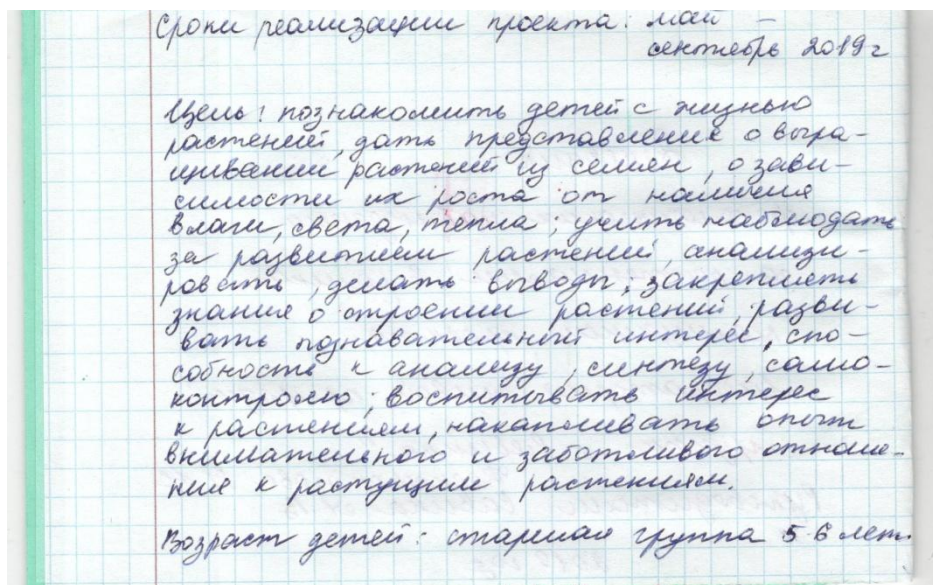 Сроки реализации проекта: май –
сентябрь 2019 г
Цель: познакомить детей с жизнью
растений, дать представление о выра-
щивании растений из семян, о зави-
симости их роста от наличия
влаги, света, тепла; учить наблюдать
за развитием растений, анализи-
ровать, делать выводы; закреплять
знания о строении растений; разви-
вать познавательный интерес, спо-
собность к анализу, синтезу, само-
контролю; воспитывать интерес
к растениям, накапливать опыт
внимательного и заботливого отноше-
ния к растущим растениям.
Возраст детей: старшая группа 5-6 лет.